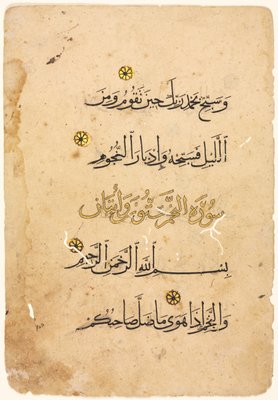 وَسَبِّحْ بِحَمْدِ رَبِّكَ حِينَ تَقُومُ وَمِنَ
اللَّيْلِ فَسَبِّحْهُ وَإِدْبَارَ النُّجُومِ
سُورَةُ النَّجْمِ سِتُّونَ وَآيَتَانِ
بِسْمِ اللَّهِ الرَّحْمَنِ الرَّحِيمِ
وَالنَّجْمِ إِذَا هَوَى مَا ضَلَّ صَاحِبُكُمْ